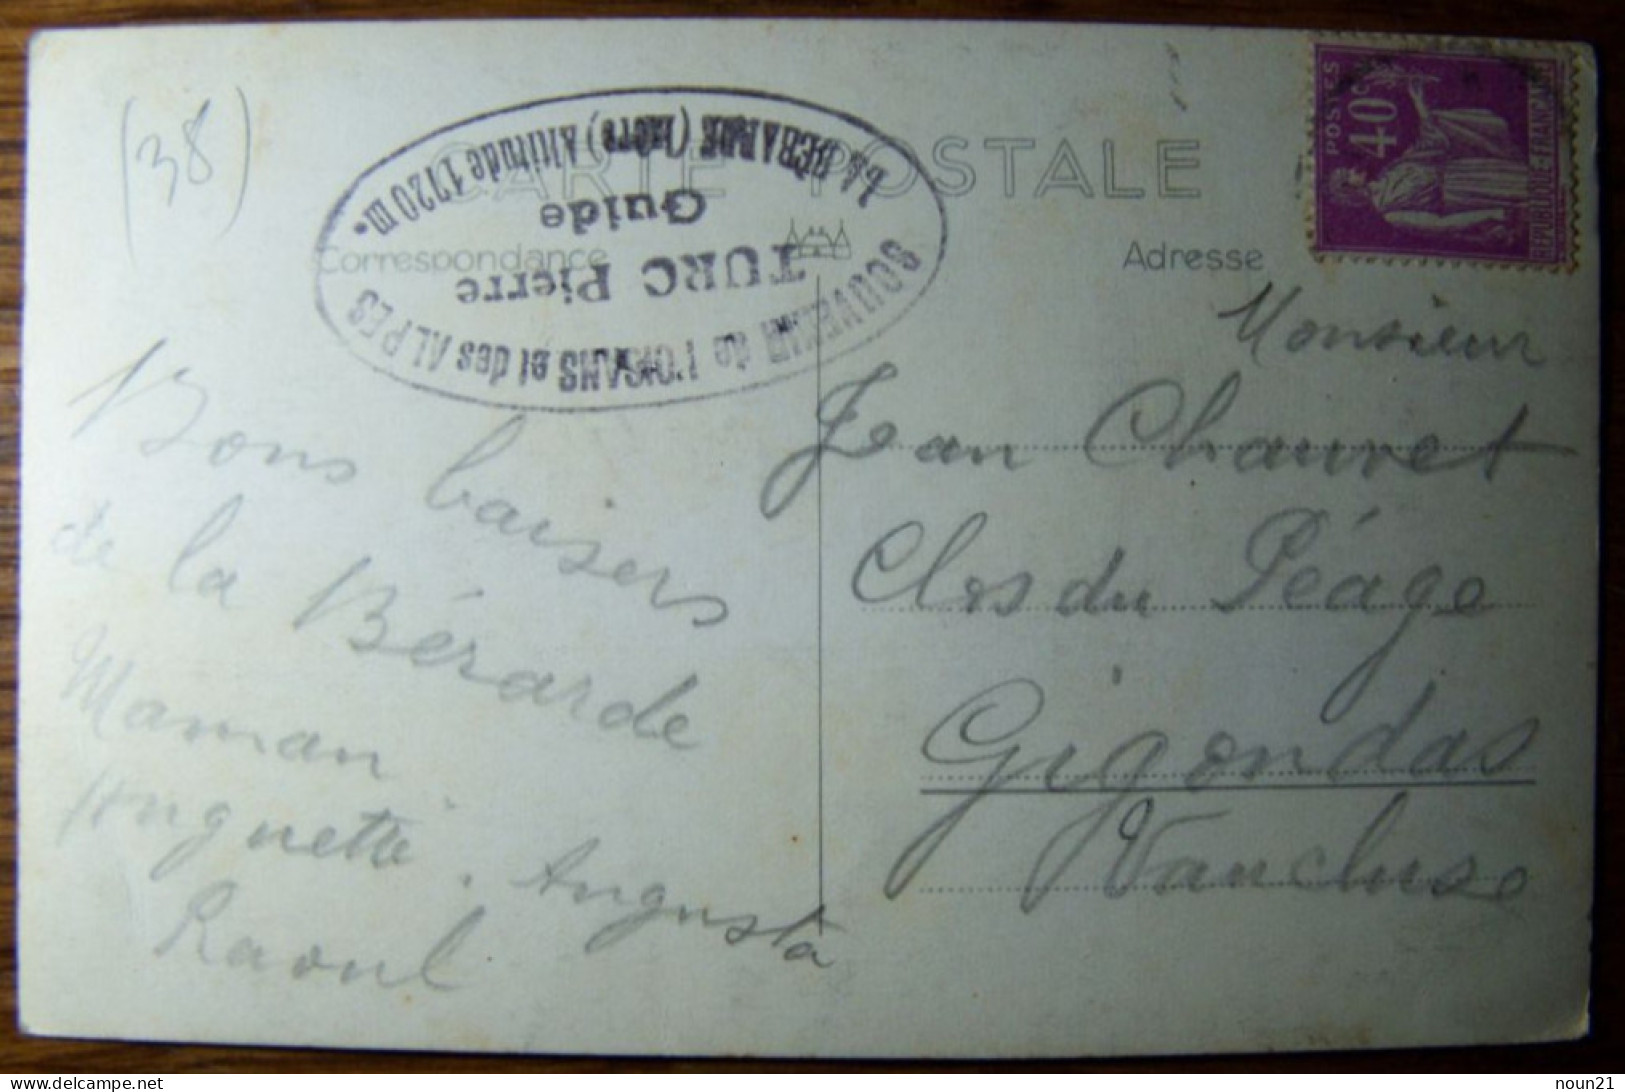 (38)
CARTE POSTALE
Correspondance
Adresse
POSTES
40c
REPUBLIQUE-FRANÇAISE
SOUVENIR de l'OISANS et des ALPES
TURC Pierre
Guide
LA BERARDE (Isère) Altitude 1720 m.
Bons baisers
de la Bérarde
Maman
Huguette. Augusta
Raoul
Monsieur
Jean Chauvet
Clos du Péage
Gigondas
Vaucluse
noun21